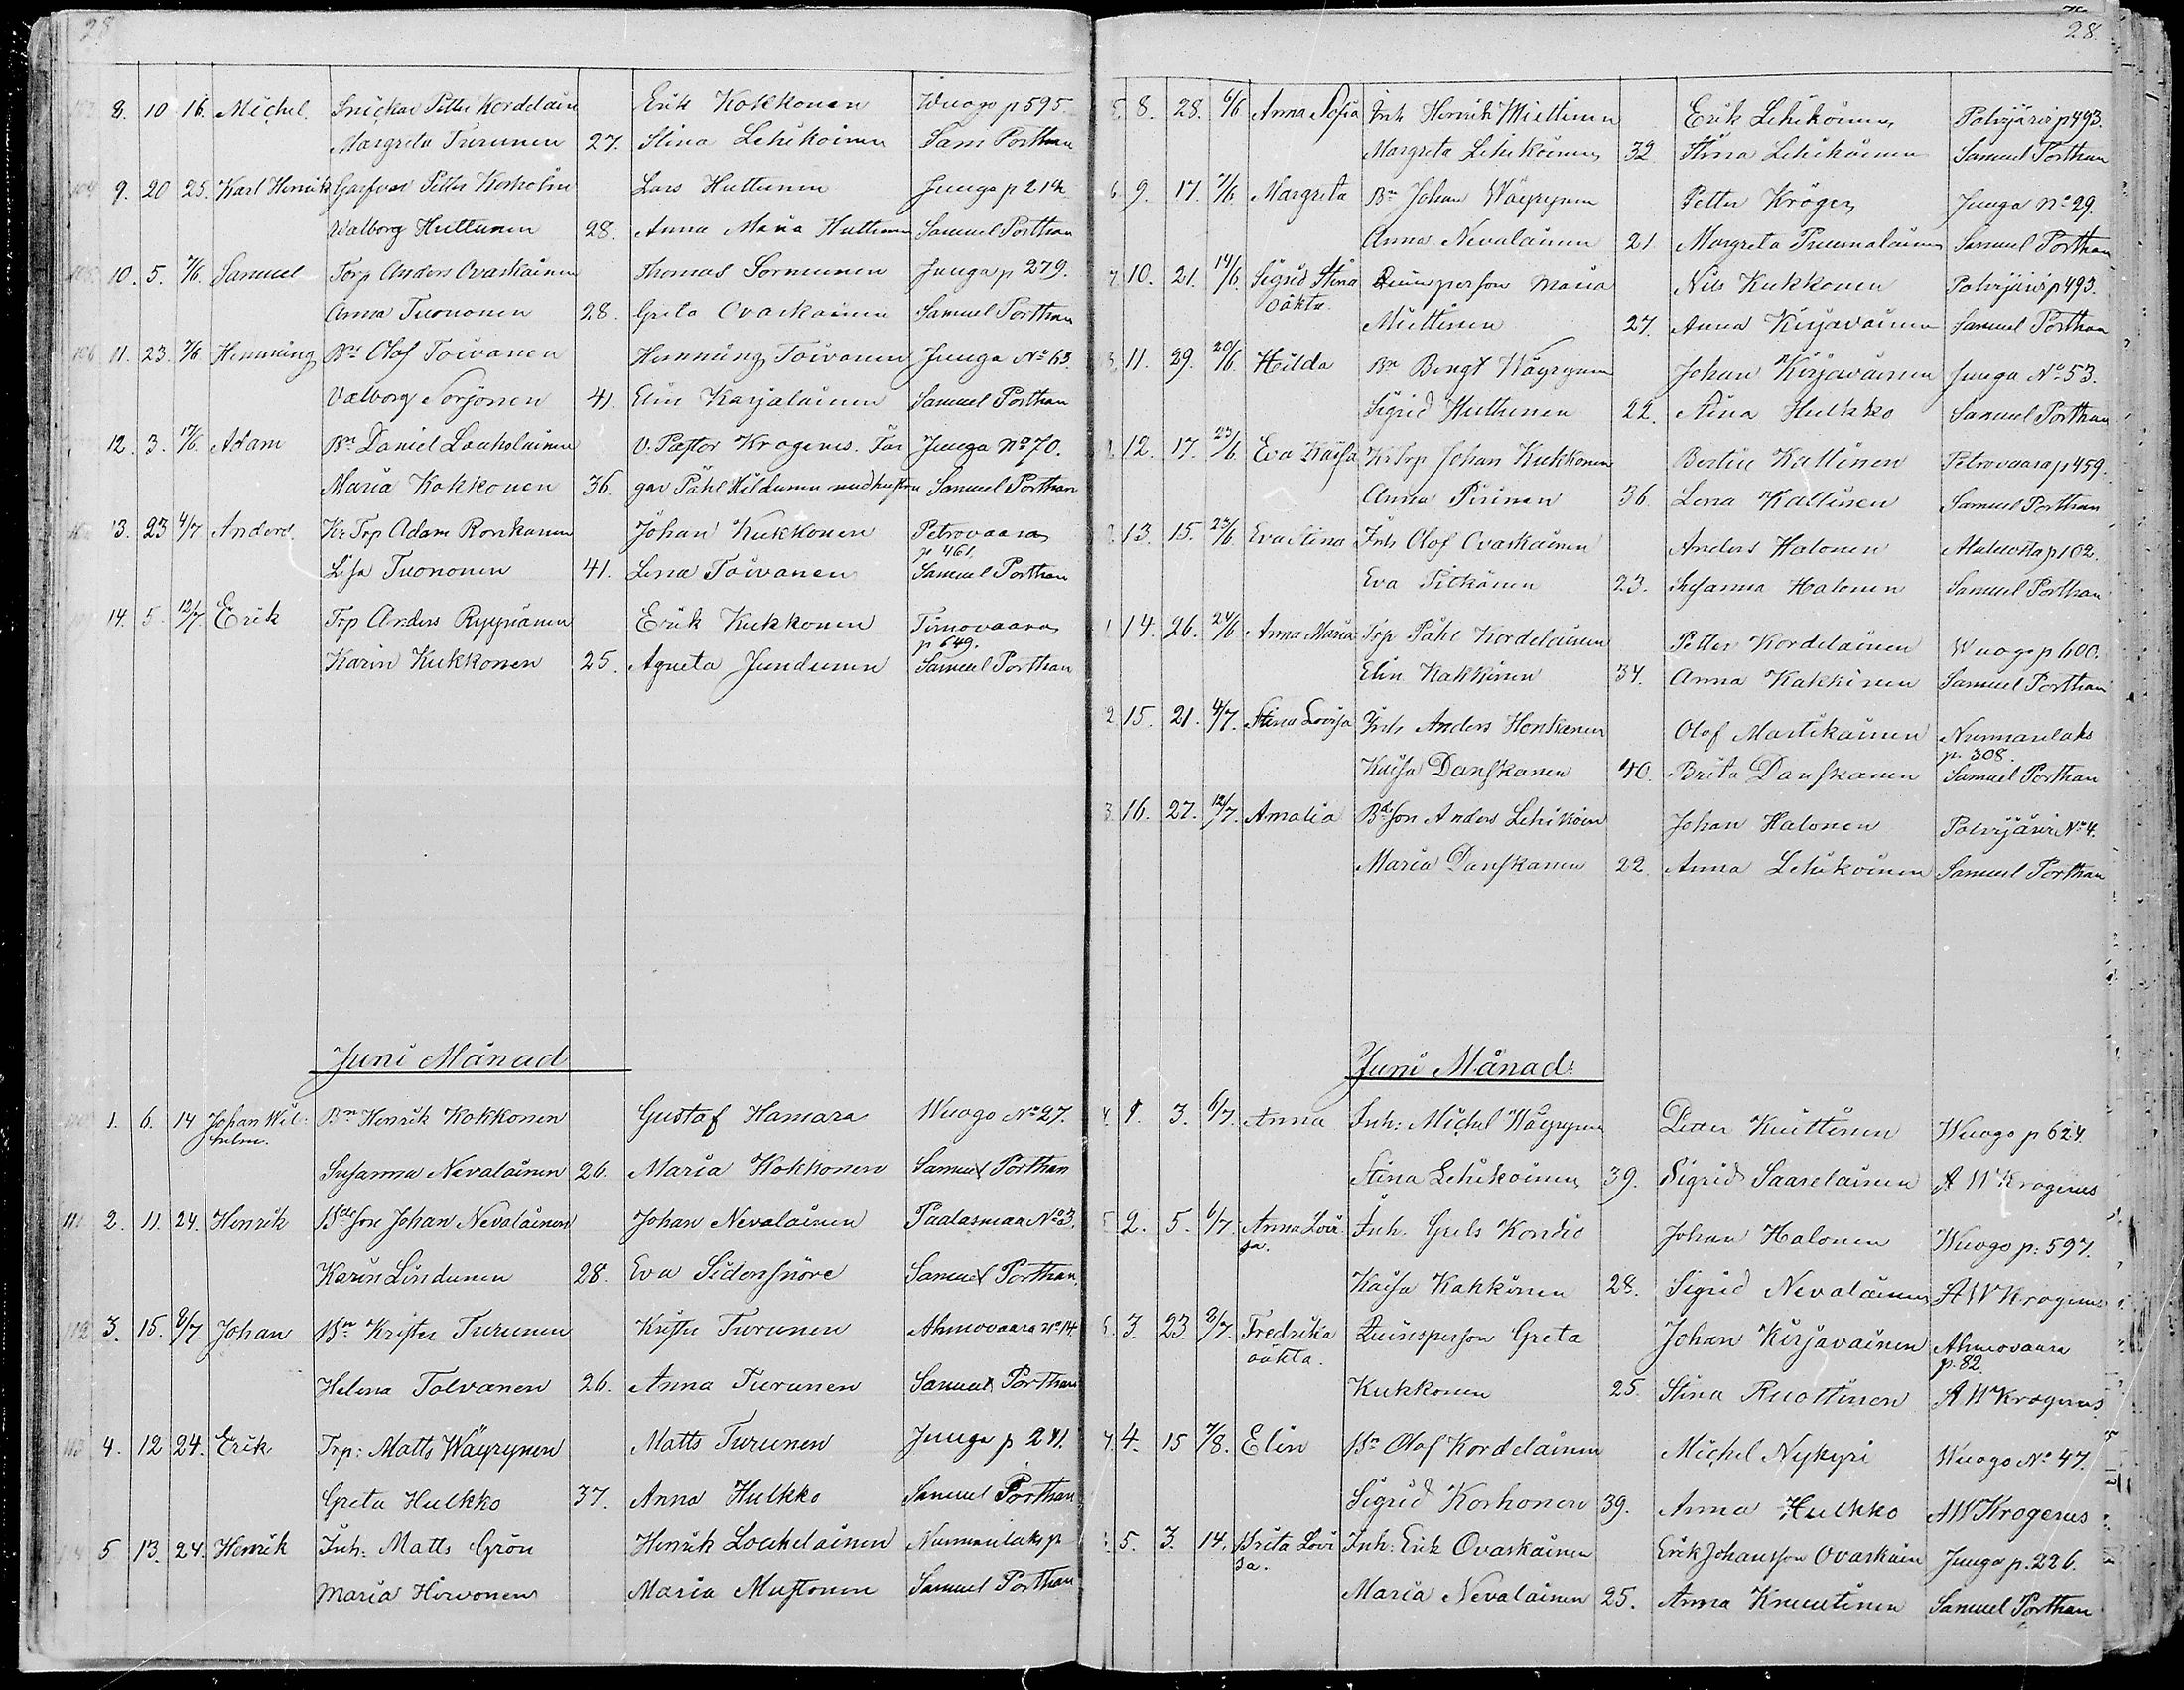 28
8. 10 16. Michel. Snickar Petter Kordelain Erik Kokkonen Wuogo p 595.
Margreta Turunen 27. Stina Lehikoinen Sam Porthan
104 9. 20 25. Karl Henrik Petter Korholin Lars Huttunen Juuga p 214
Walborg Huttunen 28. Anna Maria Huttunen Samuel Porthan
10. 5. 7/6. Samuel Torp Anders Ovaskainen Thomas Sormunen Juuga p 279.
Anna Tuononen 28. Greta Ovaskainen Samuel Porthan
106 11. 23. 7/6 Hemming Bn Olof Toivanen Hemming Toivanen Juuga No 63.
Valborg Sorjonen 41. Elin Karjalainen Samuel Porthan
12. 3. 17/6 Adam Bn Daniel Loukolainen V. Pastor Krogerus. Far Juuga No 70.
Maria Kokkonen 36. gar Påhl Hildunen med hustru Samuel Porthan
13. 23 4/7 Anders. Kr Trp Adam Ronkanen Johan Kukkonen Petrovaara
p 461.
Lisa Tuononen 41. Lena Toivanen Samuel Porthan
14. 5. 12/7. Erik Trp Anders Ryynänen Erik Kukkonen Timovaara
p 649.
Karin Kukkonen 25. Agneta Jundunen Samuel Porthan
Juni Månad
1. 6. 14 Johan Wil: Bn Henrik Kokkonen Gustaf Hamara Wuogo No 27.
helm.
Susanna Nevalainen 26. Maria Kokkonen Samuel Porthan
111 2. 11. 24. Henrik Bdeson Johan Nevalainen Johan Nevalainen Paalasmaa No 3.
Karin Lindunen 28. Eva Sidensnöre Samuel Porthan
112 3. 15. 8/7. Johan Bn Krister Turunen Krister Turunen Ahmovaara No 14.
Helena Tolvanen 26. Anna Turunen Samuel Porthan
113 4. 12 24. Erik Trp: Matts Wäyrynen Matts Turunen Juuga p 241.
Greta Hulkko 37. Anna Hulkko Samuel Porthan
5 13. 24. Henrik Inh: Matts Grön Henrik Loukolainen Nunnanlaks p
Maria Hirvonen Maria Mustonen Samuel Porthan
28.
8. 28. 6/6 Anna Sofia Inh Henrik Miettinen Erik Lehikoinen Polvijärvi p 493.
Margreta Lehikoinen 32. Stina Lehikoinen Samuel Porthan
6 9. 17. 7/6 Margreta Bn Johan Wäyrynen Petter Kröger Juuga No 29.
Anna Nevalainen 21. Margreta Puumalainen Samuel Porthan
7. 10. 21. 14/6. Sigrid Stina Quinsperson Maria Nils Kukkonen Polvijärvi p 493.
oäkta
Miettinen 27. Anna Kirjavainen Samuel Porthan
11. 29. 20/6. Hilda Bn Bengt Wäyrynen Johan Kirjavainen Juuga No 53.
Sigrid Huttunen 22. Stina Hulkko Samuel Porthan
12. 17. 23/6 Eva Kaisa Kr Trp Johan Kukkonen Bertin Kaltinen Petrovaara p 459.
Anna Piirinen 36. Lena Kaltinen Samuel Porthan
13. 15. 23/6. Eva Stina Inh Olof Ovaskainen Anders Halonen p 102.
Eva Pitkänen 23. Susanna Halonen Samuel Porthan
14. 26. 24/6 Anna Maria Trp Påhl Kordelainen Petter Kordelainen Wuogo p 600.
Elin Kakkinen 34. Anna Kakkinen Samuel Porthan
2. 15. 21. 4/7. Stina Lovisa Inh Anders Honkanen Olof Martikainen Nunnanlaks
p. 308.
Kaisa Danskanen 40. Brita Danskanen Samuel Porthan
3. 16. 27. 12/7. Amalia Bdeson Anders Lehikoin Johan Halonen Polvijärvi No 4.
Maria Danskanen 22. Anna Lehikoinen Samuel Porthan
Juni Månad.
1. 3. 6/7. Anna Inh: Michel Wäyrynen Petter Knuttinen Wuogo p 624.
Stina Lehikoinen 39. Sigrid Saarelainen A W Krogerus
2. 5. 6/7. Anna Lovi Inh. Grels Kordic Johan Halonen Wuogo p: 597.
sa.
Kaisa Kakkinen 28. Sigrid Nevalainen A W Krogerus
3. 23. 8/7. Fredrika Quinsperson Greta Johan Kirjavainen Ahmovaara
oäkta. p. 82.
Kukkonen 25. Stina Ruottinen A W Krogerus
4. 15 7/8. Elin Bn Olof Kordelainen Michel Nykyri Wuogo No 47.
Sigrid Korhonen 39. Anna Hulkko A W Krogerus
5. 3. 14. Brita Lovi Inh: Erik Ovaskainen Erik Johansson Ovaskain Juuga p. 226.
sa.
Maria Nevalainen 25. Anna Knuutinen Samuel Porthan